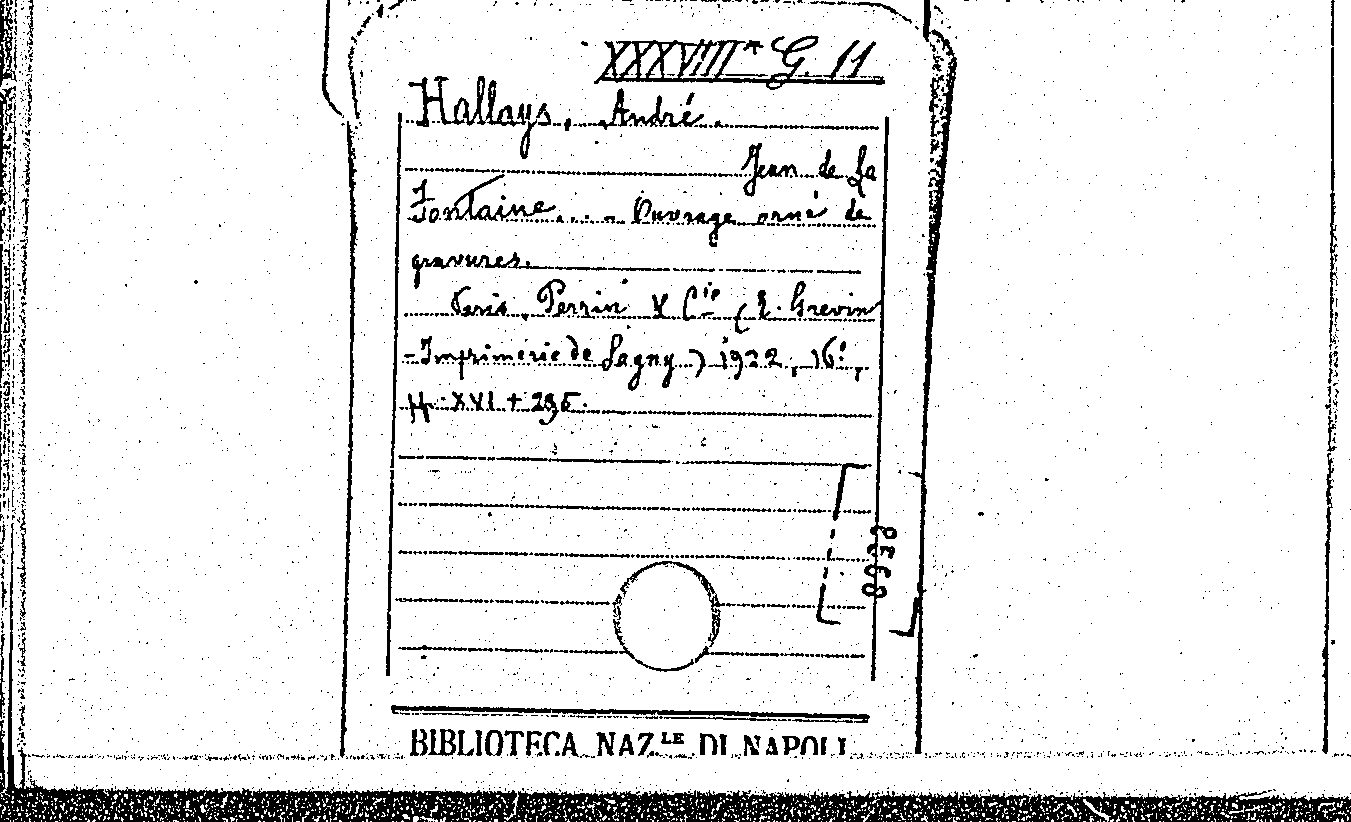 XXXVIII * G. 11
Hallays, André.
Jean de La
Fontaine... - Ouvrage orné de
gravures.
Paris, Perrin & Cie (E. Grevin
- Imprimerie de Lagny) 1922, 16º,
pp. XVI + 295.
BIBLIOTECA NAZ.LE DI NAPOLI